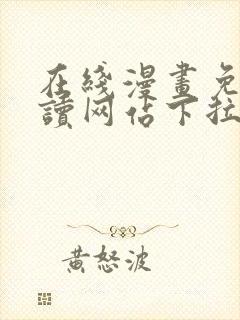 在綫漫畫免
讀网佔下拉
黄怒波